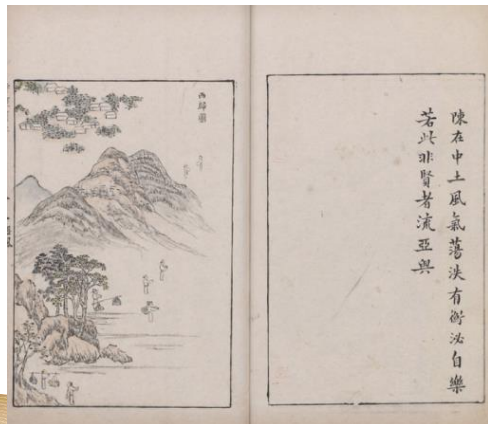 陳在中土風氣蕩泆有衡泌自樂
若此非賢者流亞與
西歸圖